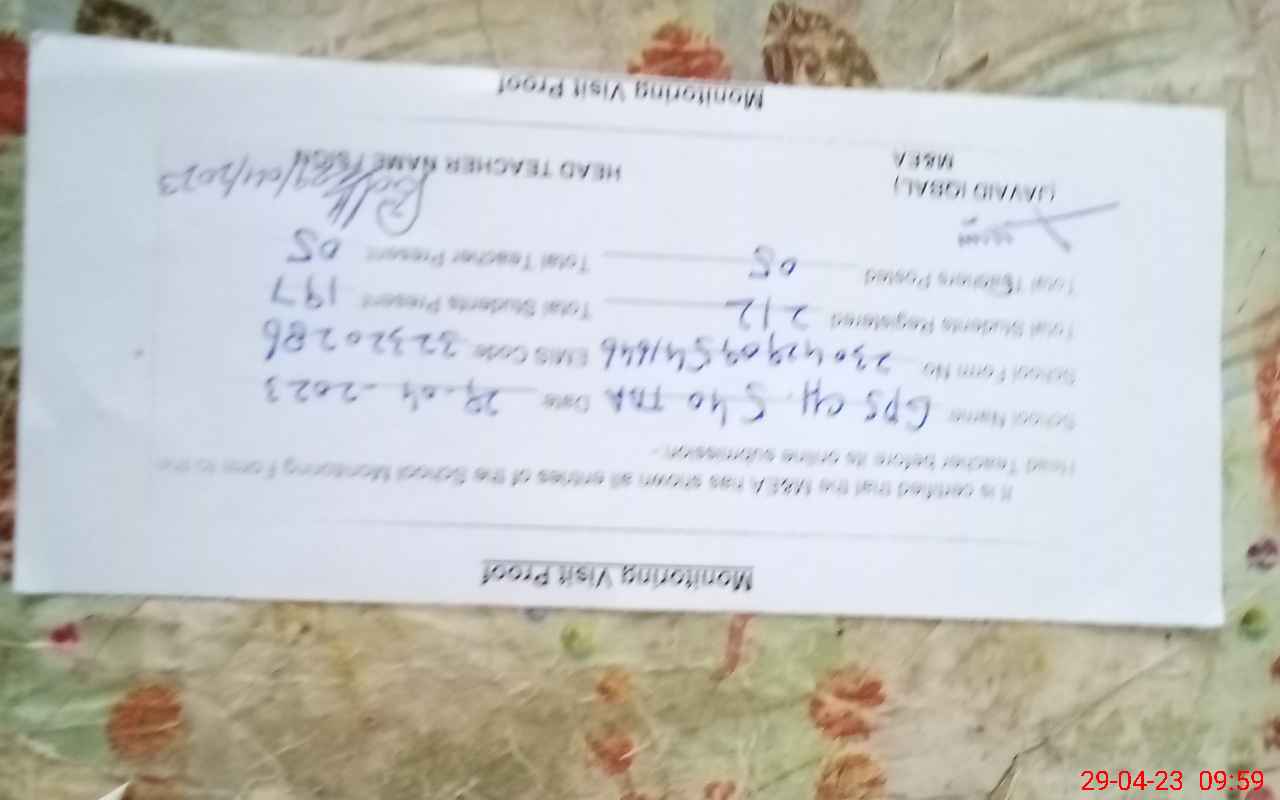 Monitoring Visit Proof
It is certified that the M&EA has shown all entries of the School Monitoring Form to the
Head Teacher before its online submission:-
School Name: GPS CH. 540 TDA Date: 29-04-2023
School Form No. 23042909541646 EMIS Code: 32320286
Total Students Registered 212 Total Students Present 197
Total Teachers Posted 05 Total Teacher Present 05
(JAVAID IQBAL)
M&EA
HEAD TEACHER NAME /SIGN
29/04/2023
Monitoring Visit Proof
29-04-23 09:59